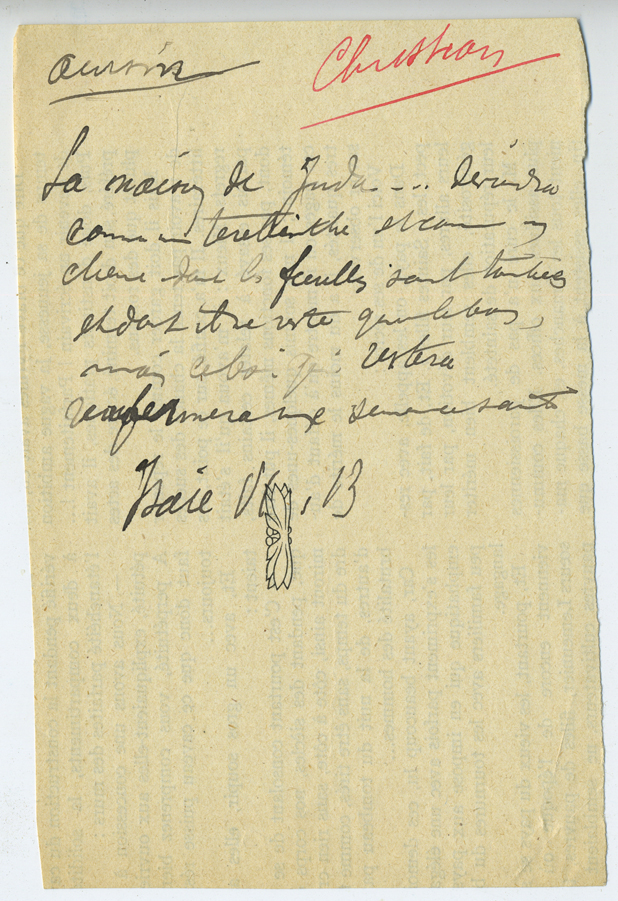 Christian
La maison de Juda ... deviendra
comme un terebinthe et comme un
chene dont les feuilles sont tombées
et dont il ne reste que le bois,
mais ce bois qui restera
renfermera une semence sainte
Isaie VI, 13